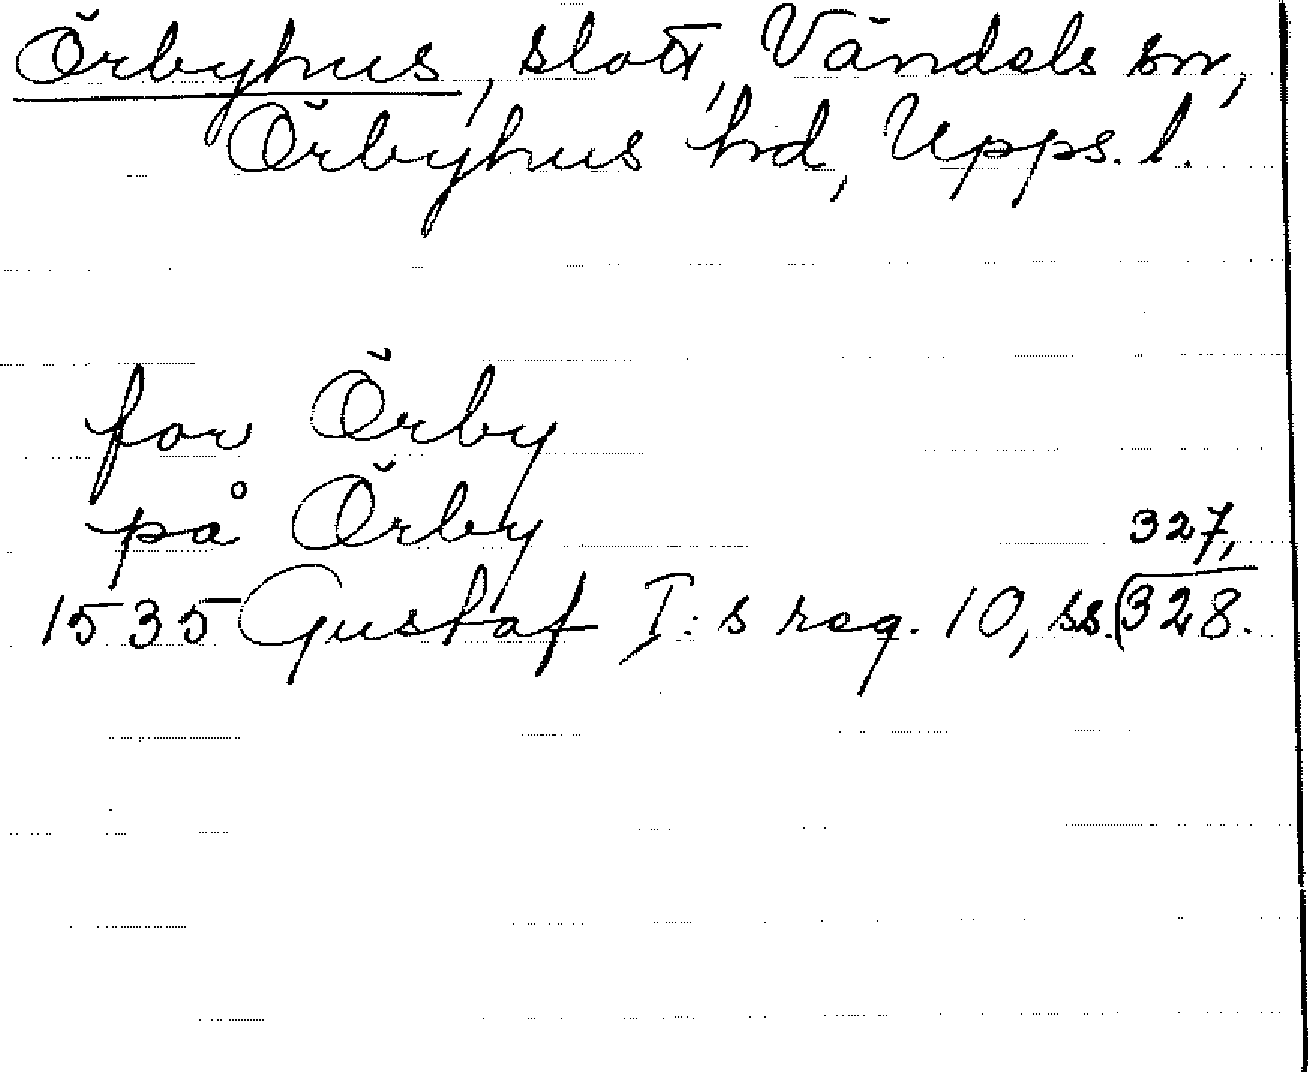 Örbyhus, slott, Vändels sn,
Örbyhus hd, Upps. l.
for Örby
på Örby
327,
1535 Gustaf I:s reg. 10, ss. 328.